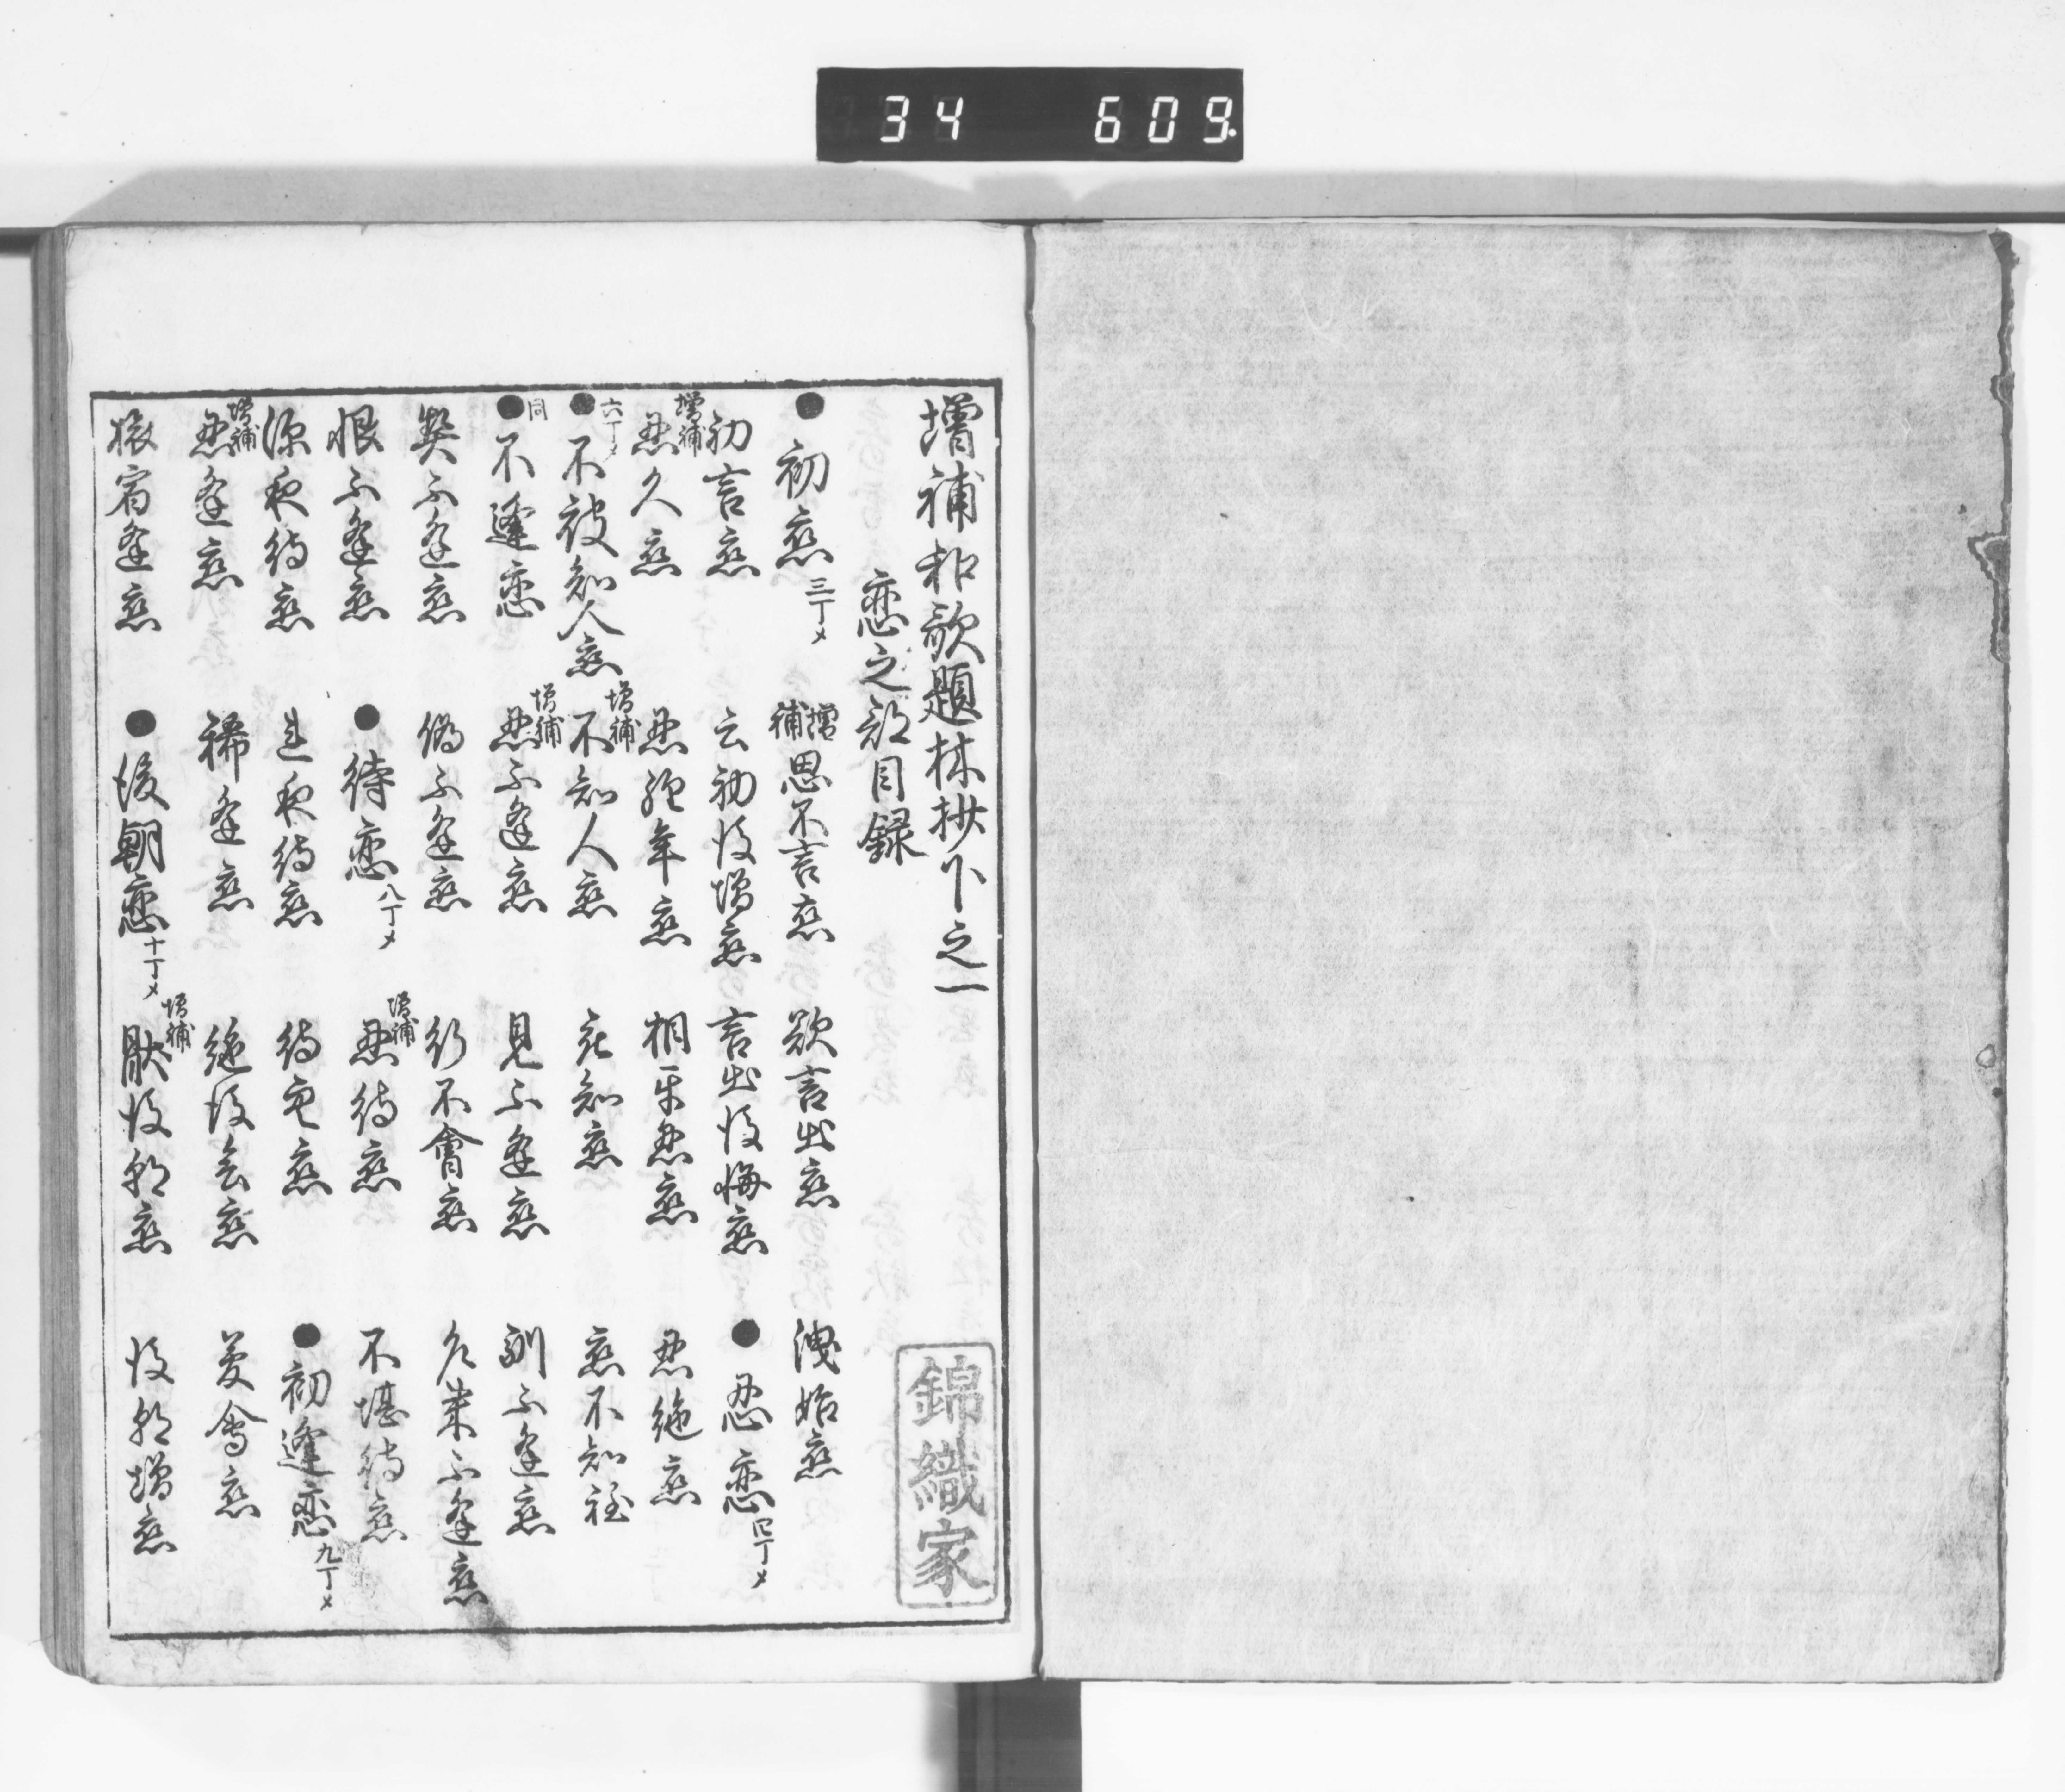 34 609
増補和歌題林抄下之一
恋之部目録
錦織家
●初恋三丁メ 増補思不言恋 欲言出恋 洩始恋
初言恋 云初後増恋 言出後悔恋 ●忍恋四丁メ
増補忍久恋 忍経年恋 相互忍恋 忍絶恋
●六丁メ不被知人恋 増補不知人恋 恋不知
●同不逢恋 増補忍不逢恋 見不逢恋 馴不逢恋
契不逢恋 偽不逢恋 行不會恋 久来不逢恋
恨不逢恋 ●待恋八丁メ 増補忍待恋 不堪待恋
深夜待恋 連夜待恋 待空恋 ●初逢恋九丁メ
増補忍逢恋 稀逢恋 絶後会恋 夢會恋
旅宿逢恋 ●後朝恋十丁メ 増補後朝恋 後朝増恋